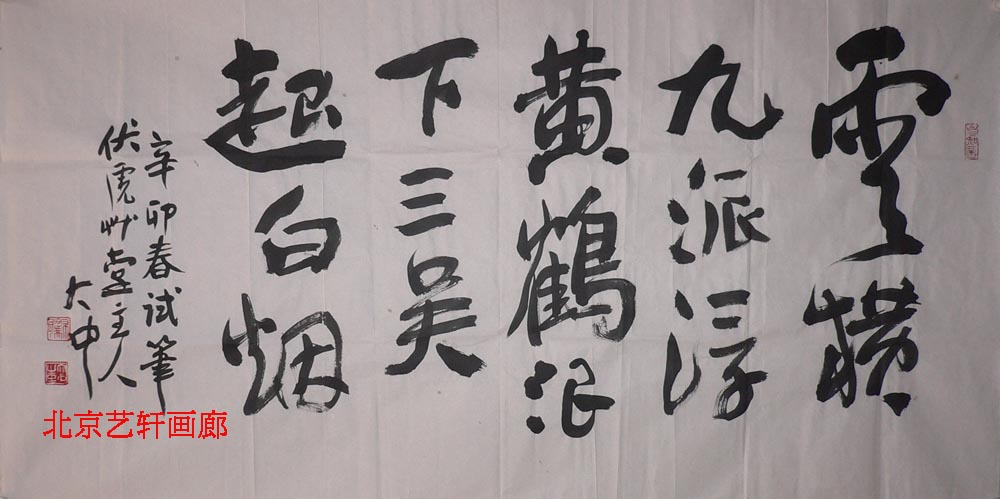 雲橫
九派浮
黄鶴浪
下三吴
起白烟
辛卯春试筆
伏虎艸堂主人
大中
北京艺轩画廊